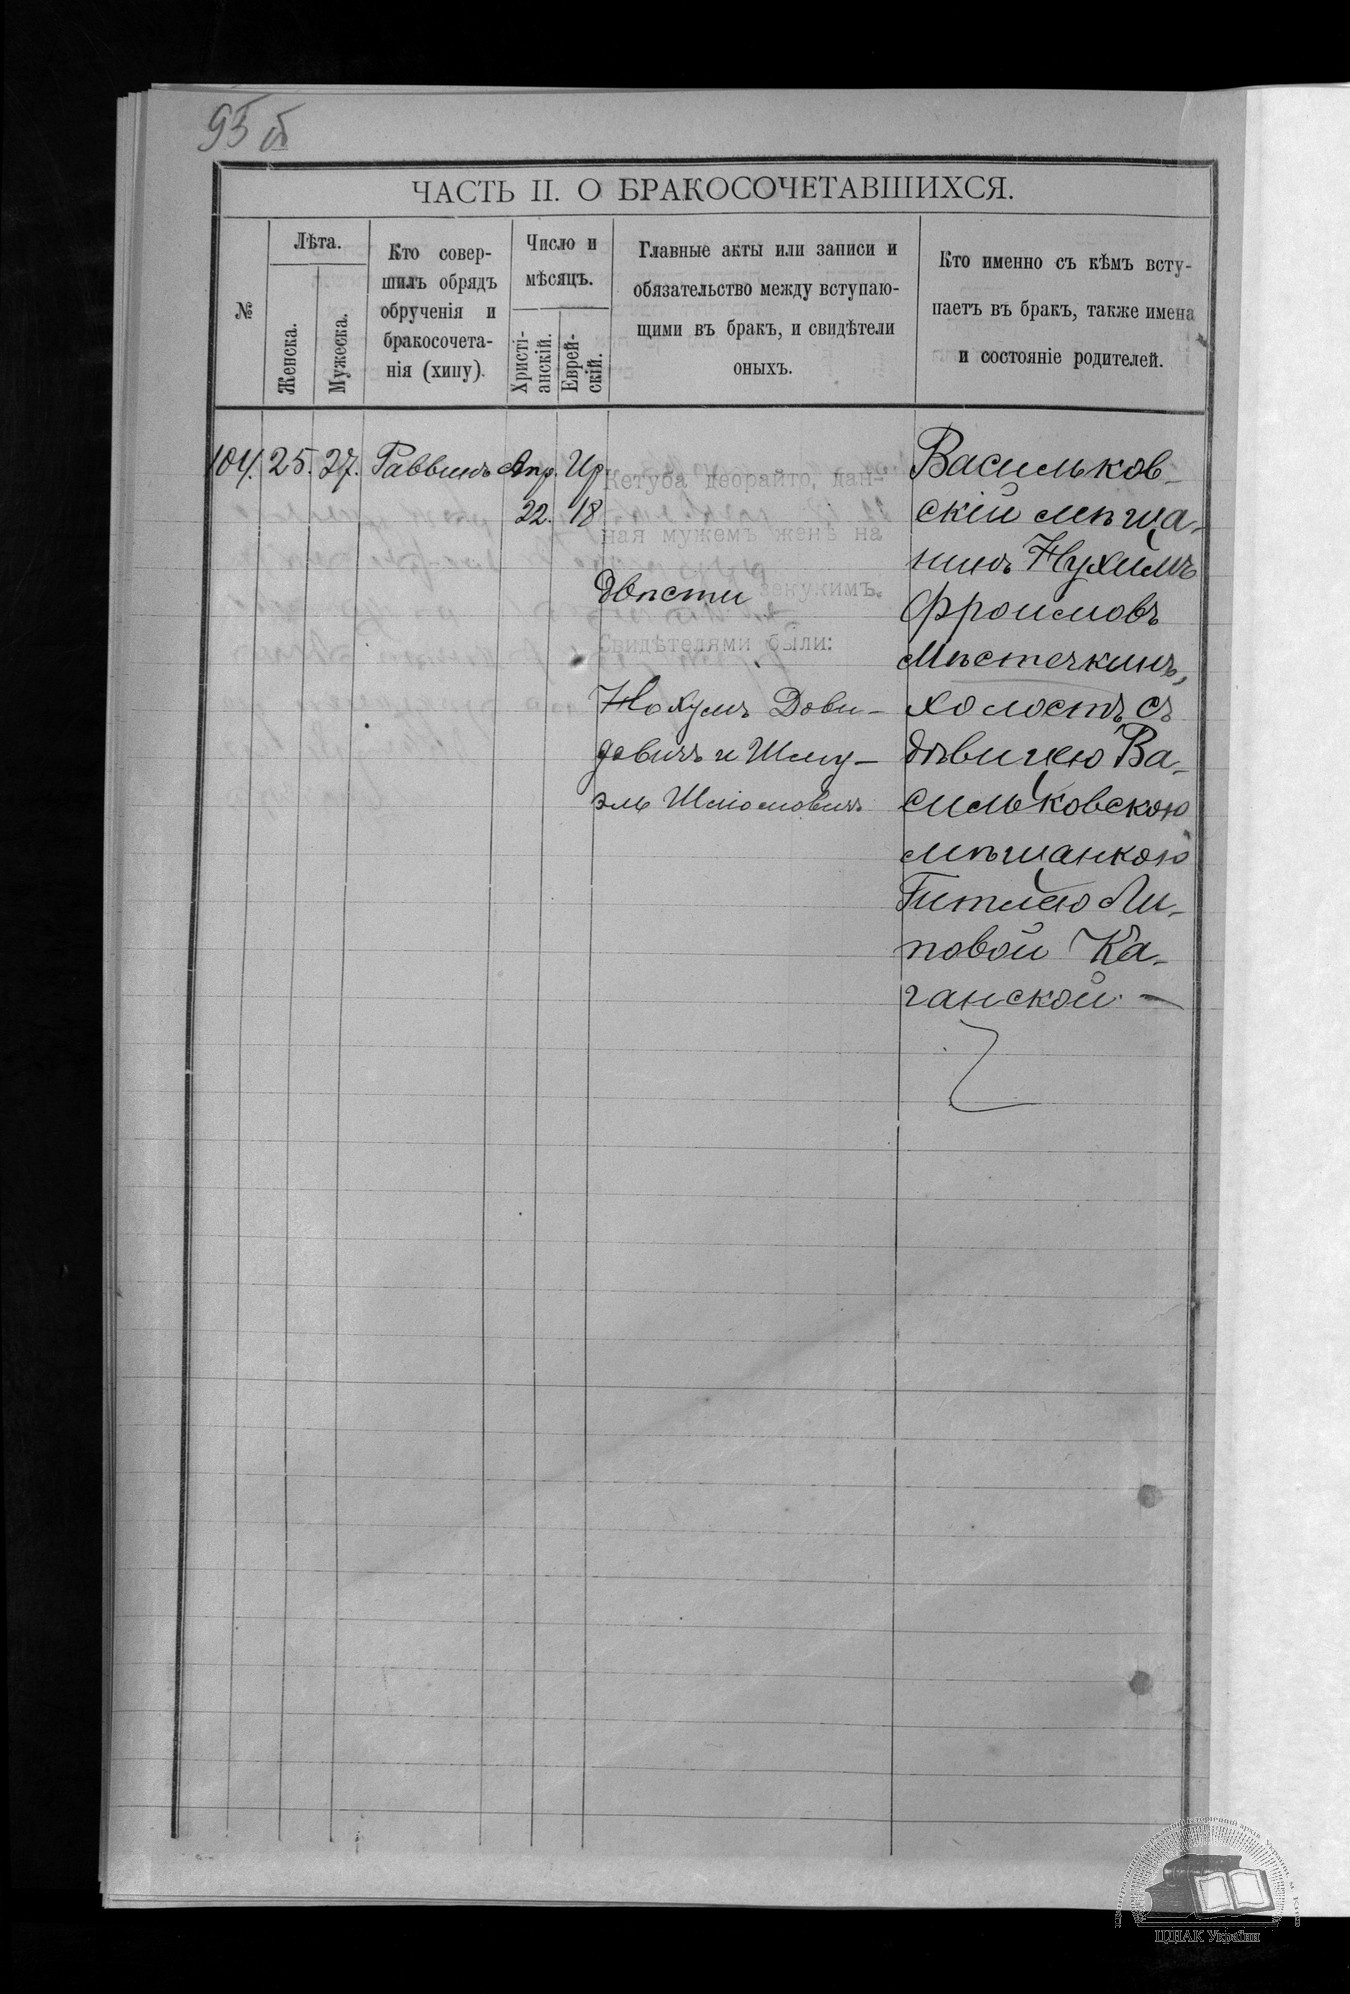 93 б
ЧАСТЬ II. О БРАКОСОЧЕТАВШИХСЯ.
№
Лѣта.
Женска.
Мужеска.
Кто совер-
шилъ обрядъ
обрученія и
бракосочета-
нія (хипу).
Число и
мѣсяцъ.
Христі-
анскій.
Еврей-
скій.
Главные акты или записи и
обязательство между вступаю-
щими въ бракъ, и свидѣтели
оныхъ.
Кто именно съ кѣмъ всту-
паетъ въ бракъ, также имена
и состояніе родителей.
104. 25. 27. Раввинъ Апр. Ир
22. 18
Кетуба деорайто, дан-
ная мужемъ женѣ на
двѣсти зекукимъ.
Свидѣтелями были:
Нохумъ Дови-
довичъ и Шму-
эль Шліомовичъ
Васильков-
скій мѣща-
нинъ Нухимъ
Фроимовъ
Мѣстечкинъ,
холостъ съ
дѣвицею Ва-
сильковскою
мѣщанкою
Гитлею Ли-
повой Ка-
ганской —
ЦДІАК України